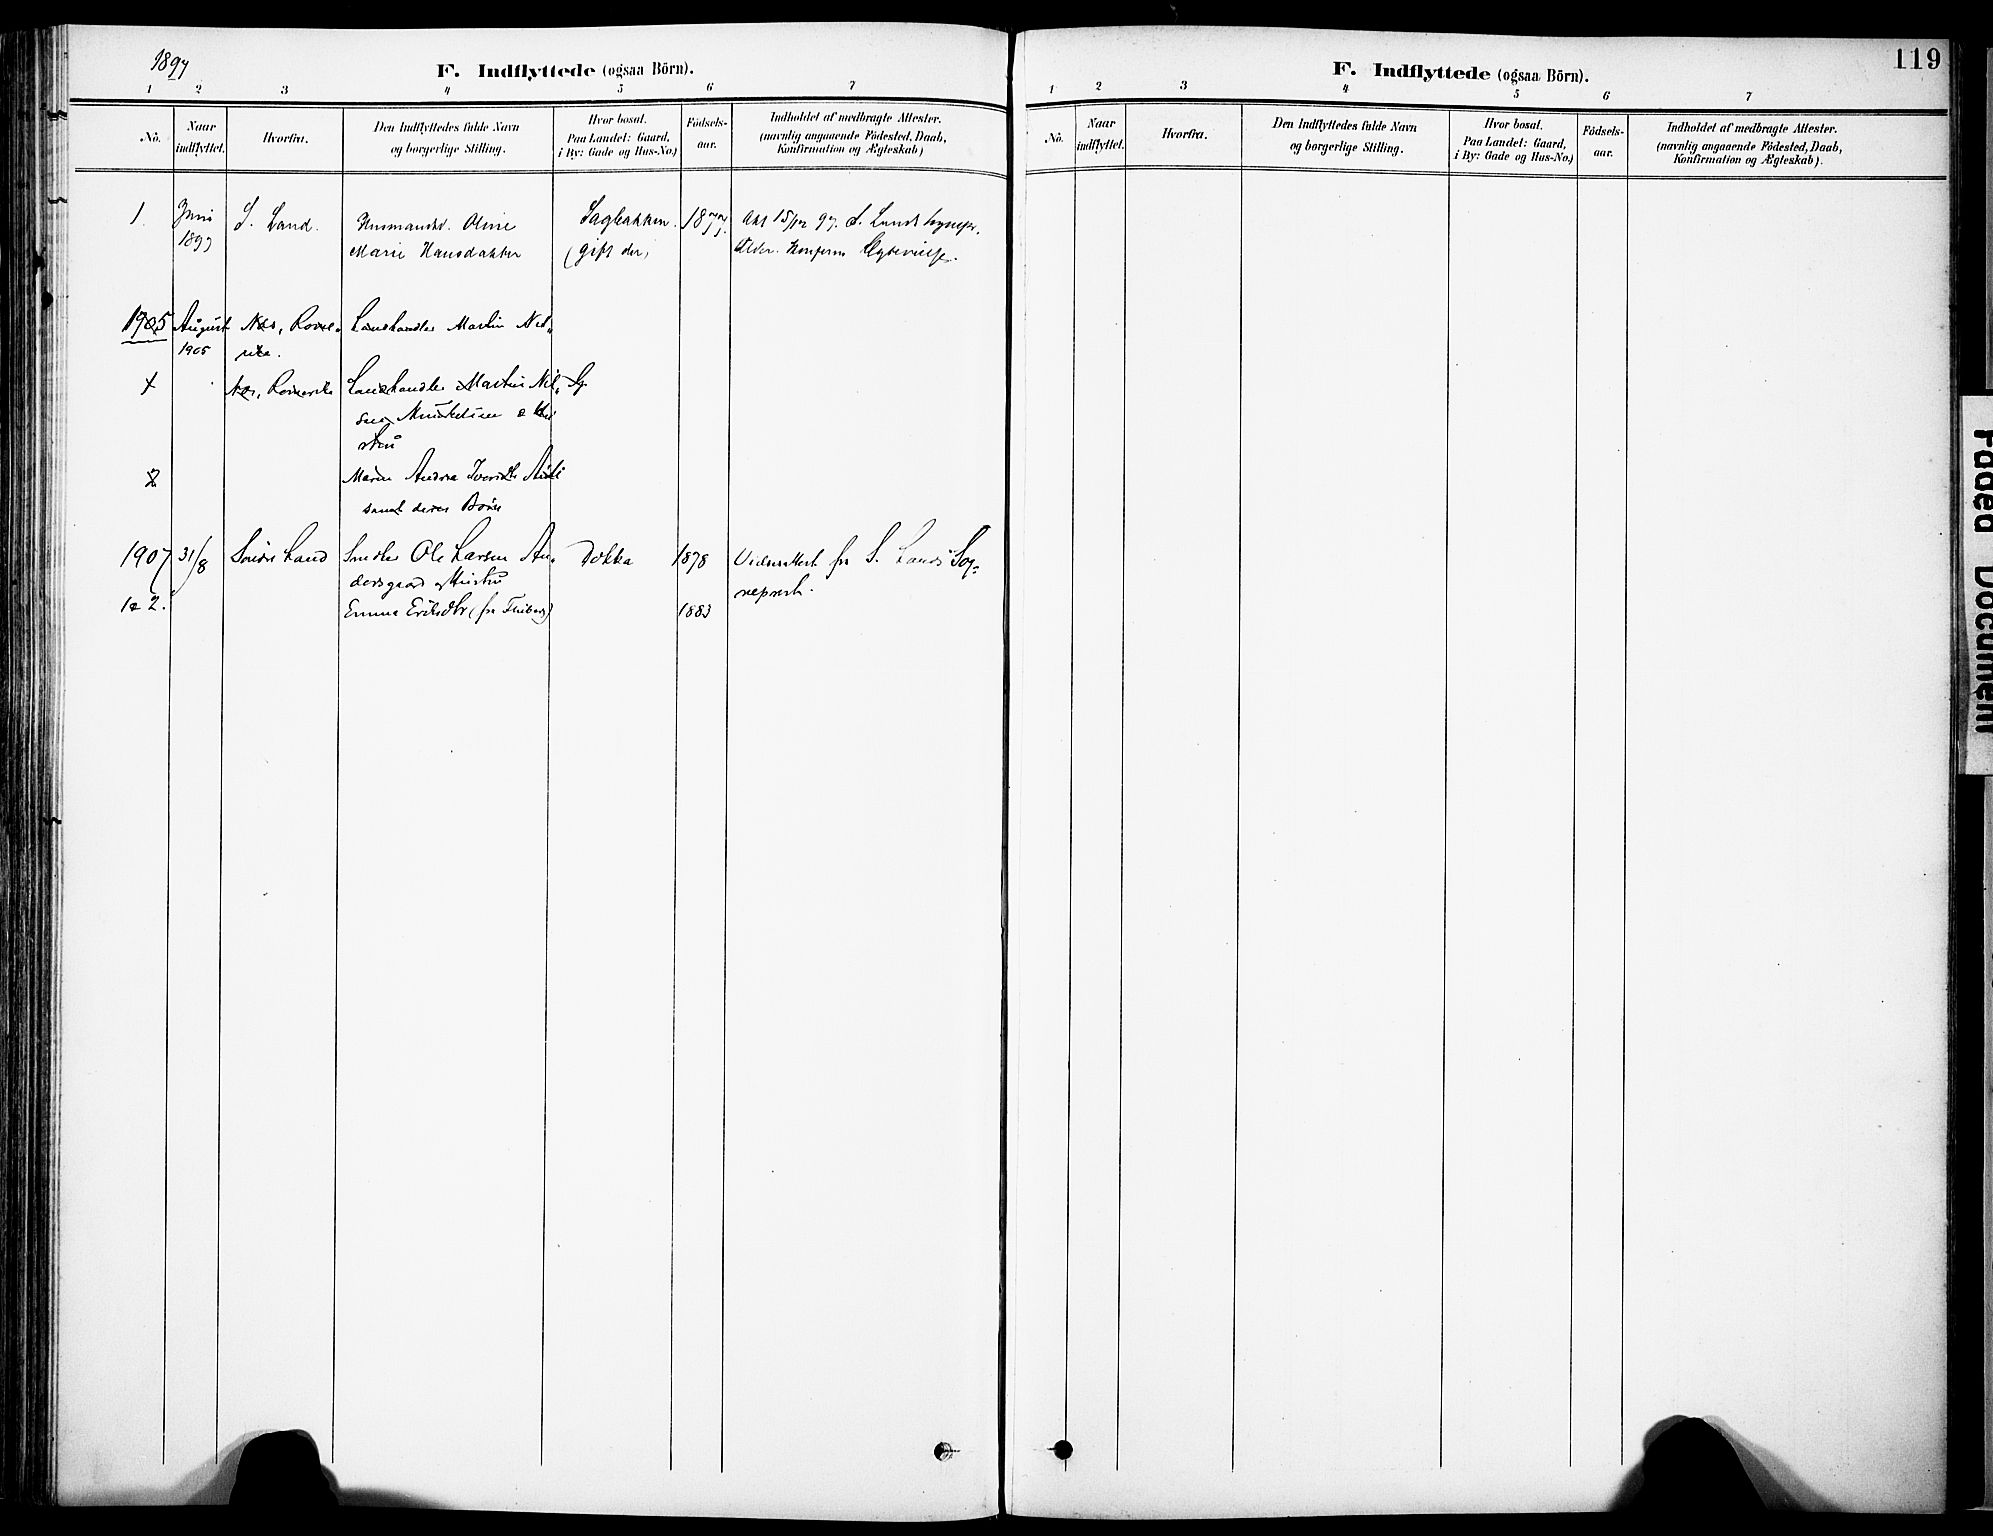 1897
F. Indflyttede (ogsaa Börn).
1 2 3 4 5 6 7
No. Naar indflyttet. Hvorfra. Den Indflyttedes fulde Navn og borgerlige Stilling. Hvor bosat. Paa Landet: Gaard, i By: Gade og Hus-No.) Födsels-aar. Indholdet af medbragte Attester. (navnlig angaaende Födested, Daab, Konfirmation og Ægteskab)
1. Juni S. Land. Oline Sagbakken. 1877. Att 15/12 97. S. Lands
1897 Marie Hansdatter (gift der)
1905 August Nes, Rome- Landhandler Martin Nil-
1905 rike.
1 Nes, Romerike Landhandler Martin Nil-
sen
2 Maren Andrea
samt deres Börn
1907 31/8 Søndre Land Ole Larsen An- Dokka 1878 fra S. Lands Sog-
dersgaard og Hustru neprest.
1 2. Emma Eriksdtr (fra 1883
119
F. Indflyttede (ogsaa Börn).
1 2 3 4 5 6 7
No. Naar indflyttet. Hvorfra. Den Indflyttedes fulde Navn og borgerlige Stilling. Hvor bosat. Paa Landet: Gaard, i By: Gade og Hus-No.) Födsels-aar. Indholdet af medbragte Attester. (navnlig angaaende Födested, Daab, Konfirmation og Ægteskab).
Faded Document